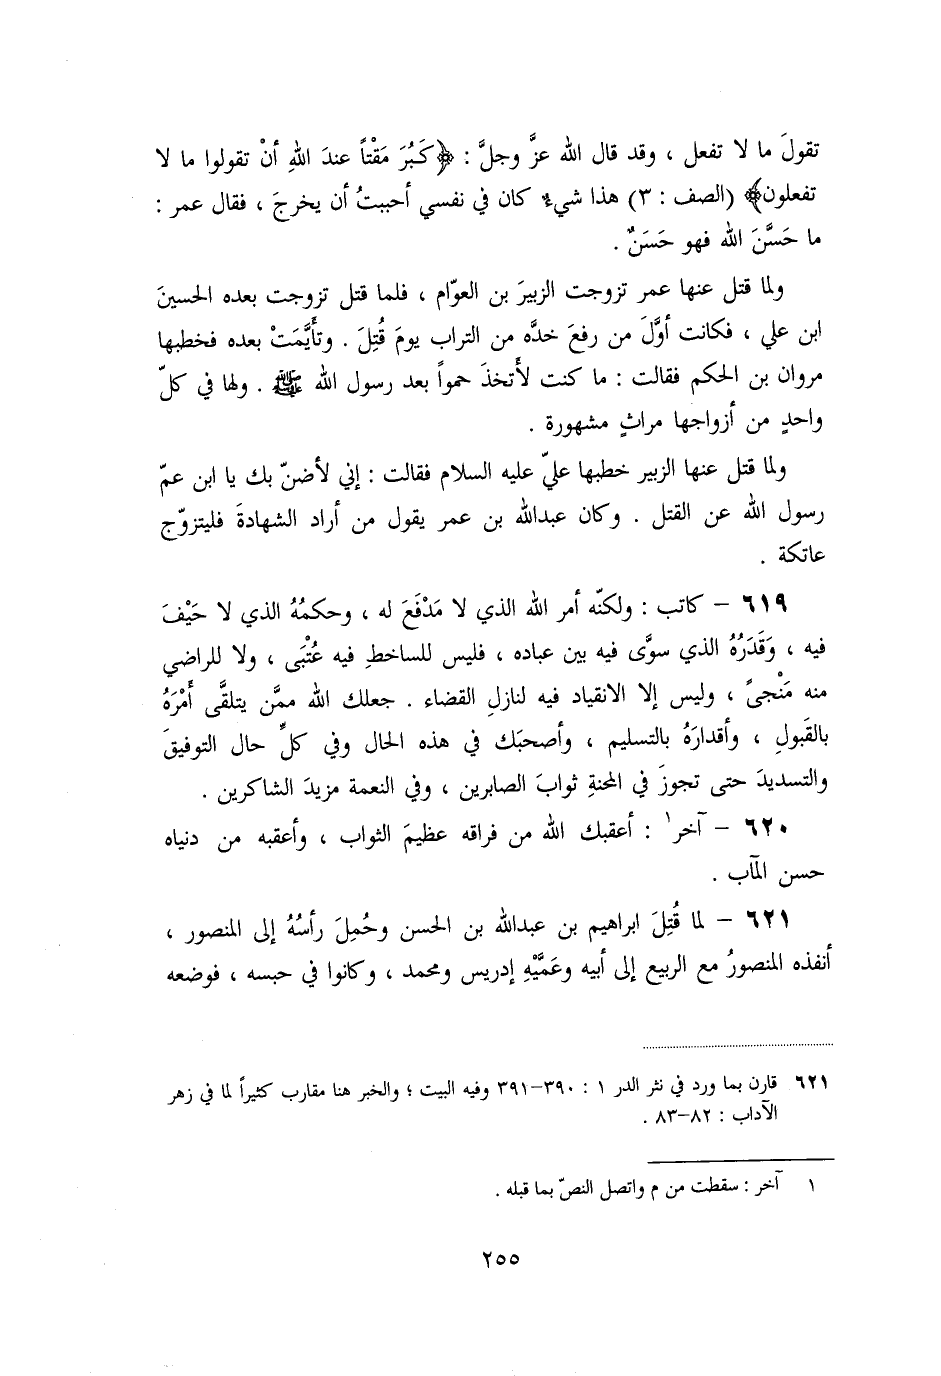 تقولَ ما لا تفعل ، وقد قال الله عزَّ وجلَّ : ﴿كَبُرَ مَقْتاً عندَ اللهِ أنْ تقولوا ما لا
تفعلون﴾ (الصف : ٣) هذا شيءٌ كان في نفسي أحببتُ أن يخرجَ ، فقال عمر :
ما حَسَّنَ الله فهو حَسَنٌ .
ولما قتل عنها عمر تزوجت الزبيرَ بن العوّام ، فلما قتل تزوجت بعده الحسينَ
ابن علي ، فكانت أوَّلَ من رفعَ خدَّه من التراب يومَ قُتِلَ . وتأَيَّمَتْ بعده فخطبها
مروان بن الحكم فقالت : ما كنت لأَتخذَ حمواً بعد رسول الله ﷺ . ولها في كلّ
واحدٍ من أزواجها مراثٍ مشهورة .
ولما قتل عنها الزبير خطبها عليّ عليه السلام فقالت : إني لأضنّ بك يا ابن عمّ
رسول الله عن القتل . وكان عبدالله بن عمر يقول من أراد الشهادةَ فليتزوّج
عاتكة .
٦١٩ – كاتب : ولكنّه أمر الله الذي لا مَدْفَعَ له ، وحكمُهُ الذي لا حَيْفَ
فيه ، وَقَدَرُهُ الذي سوَّى فيه بين عباده ، فليس للساخطِ فيه عُتْبَى ، ولا للراضي
منه مَنْجىً ، وليس إلا الانقياد فيه لنازلِ القضاء . جعلك الله ممَّن يتلقَّى أَمْرَهُ
بالقَبولِ ، وأقدارَهُ بالتسليم ، وأصحبَك في هذه الحال وفي كلِّ حال التوفيقَ
والتسديدَ حتى تجوزَ في المحنةِ ثوابَ الصابرين ، وفي النعمة مزيدَ الشاكرين .
٦٢٠ – آخر١ : أعقبك الله من فراقه عظيمَ الثواب ، وأعقبه من دنياه
حسن المآب .
٦٢١ – لما قُتِلَ ابراهيم بن عبدالله بن الحسن وحُمِلَ رأسُهُ إلى المنصور ،
أنفذه المنصورُ مع الربيع إلى أبيه وعَمَّيْهِ إدريس ومحمد ، وكانوا في حبسه ، فوضعه
٦٢١ قارن بما ورد في نثر الدر ١ : ٣٩٠–٣٩١ وفيه البيت ؛ والخبر هنا مقارب كثيراً لما في زهر
الآداب : ٨٢–٨٣ .
١ آخر : سقطت من م واتصل النصّ بما قبله .
٢٥٥